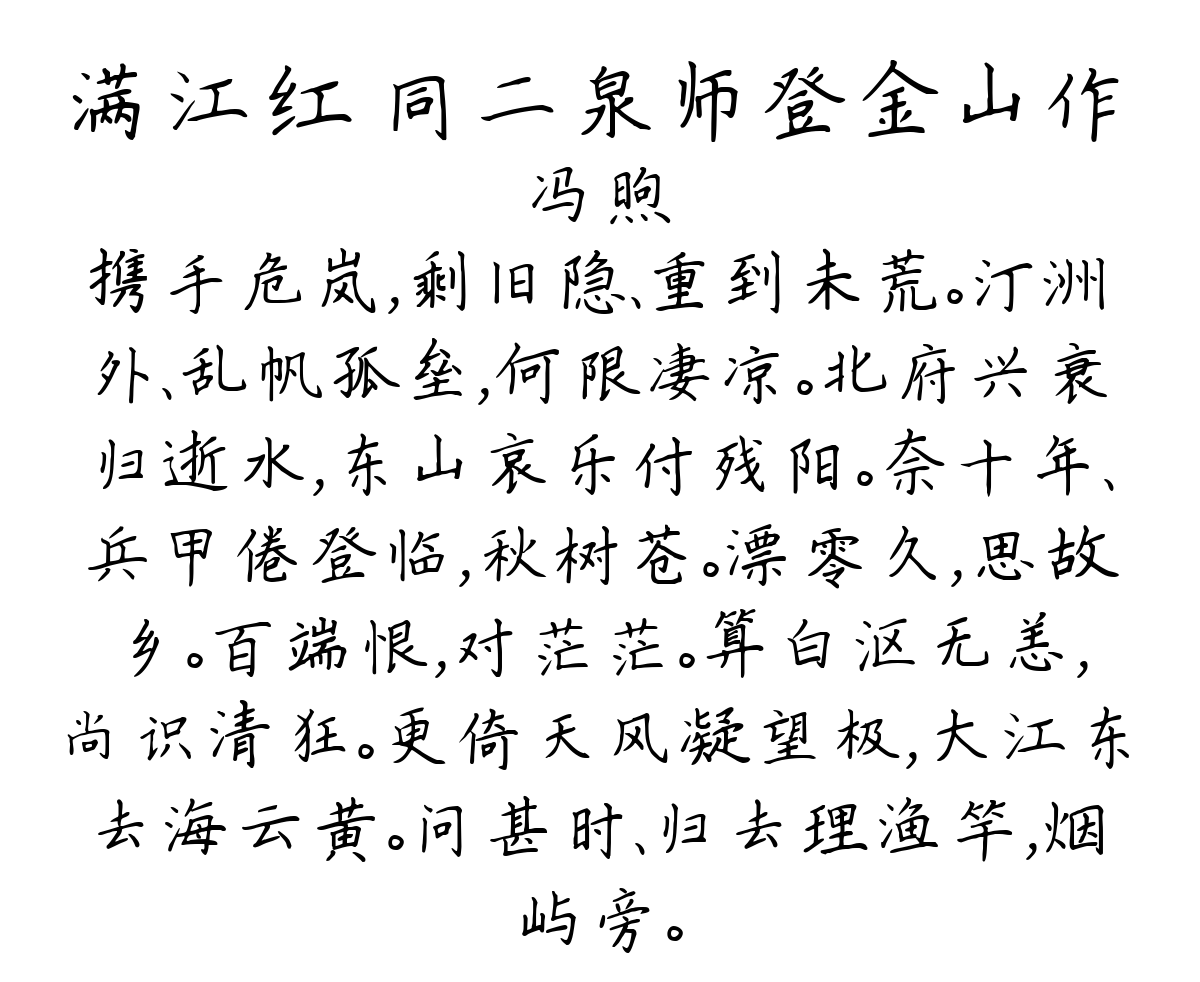 满江红 同二泉师登金山作
冯煦
携手危岚,剩旧隐、重到未荒。汀洲
外、乱帆孤垒,何限凄凉。北府兴衰
归逝水,东山哀乐付残阳。奈十年、
兵甲倦登临,秋树苍。漂零久,思故
乡。百端恨,对茫茫。算白沤无恙,
尚识清狂。更倚天风凝望极,大江东
去海云黄。问甚时、归去理渔竿,烟
屿旁。